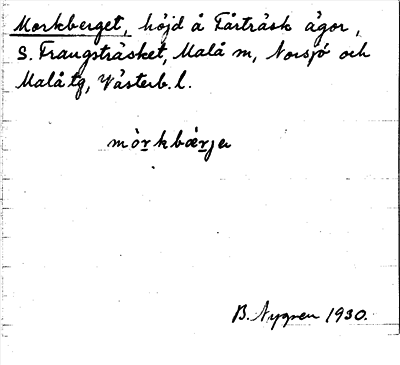 Morkberget, höjd å Fårträsk ägor,
S. Fraugsträsket, Malå m, Norsjö och
Malå tg, Västerb. l.
mòrkbærjɐ
B. Nygren 1930.